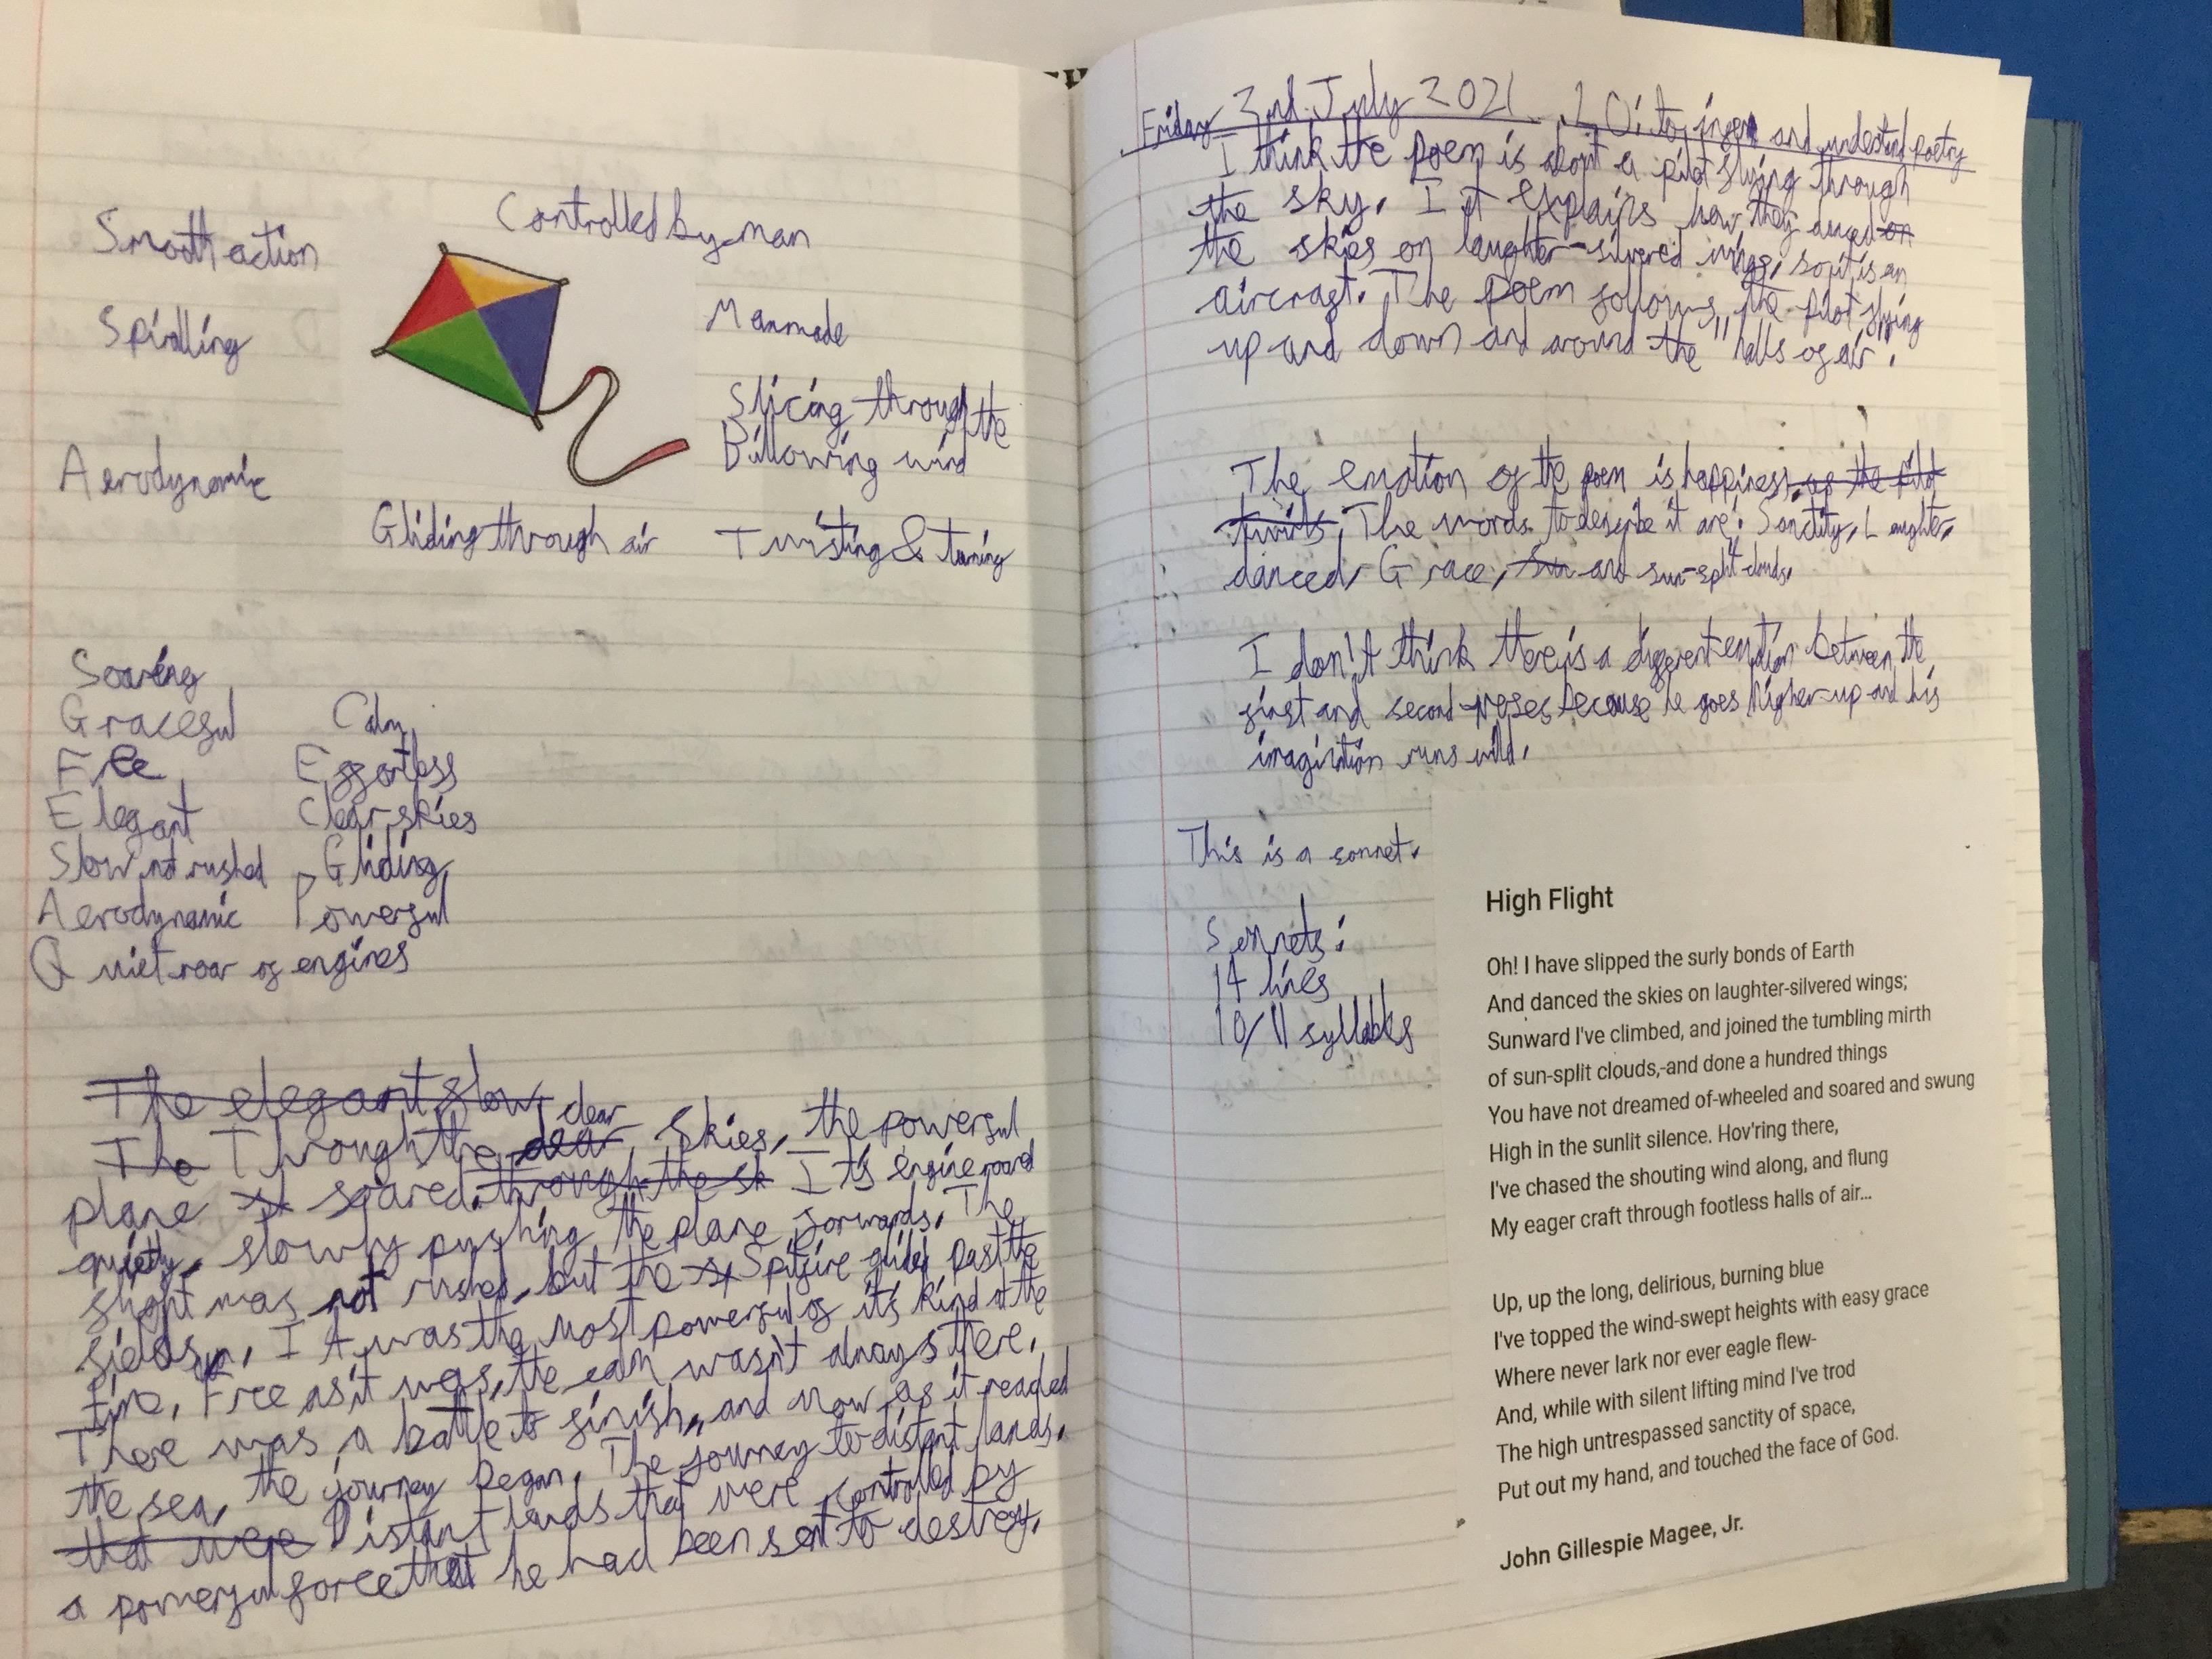 Smooth action
Controlled by man
Spiralling
Manmade
Slicing through the
Billowing wind
Aerodynamic
Gliding through air
Twisting & turning
Soaring
Graceful
Calm
Free
Effortless
Elegant
Clear skies
Slow, not rushed
Gliding
Aerodynamic
Powerful
Quiet roar of engines
The elegant slow
The Through the clear skies, the powerful
plane soared. through the sk It's engine roared
quietly, slowly pushing the plane forwards. The
flight was not rushed, but the Spitfire glided past the
fields. It was the most powerful of it's kind at the
time. Free as it was, the calm wasn't always there.
There was a battle to finish, and now, as it reached
the sea, the journey began. The journey to distant lands.
that were Distant lands that were controlled by
a powerful force that he had been sent to destroy.
Friday 2nd July 2021 LO: to infer and understand poetry
I think the poem is about a pilot flying through
the sky. I it explains how they danced on
the skies on laughter-silvered wings, so it is an
aircraft. The poem follows the pilot flying
up and down and around the "halls of air".
The emotion of the poem is happiness. as the pilot
twirls. The words to descibe it are: Sanctity, Laughter,
danced, Grace, sun and sun-split-clouds.
I don't think there is a different emotion between the
first and second because he goes higher up and his
imagination runs wild.
This is a sonnet.
Sonnets:
14 lines
10/11 syllables
High Flight
Oh! I have slipped the surly bonds of Earth
And danced the skies on laughter-silvered wings;
Sunward I've climbed, and joined the tumbling mirth
of sun-split clouds,-and done a hundred things
You have not dreamed of-wheeled and soared and swung
High in the sunlit silence. Hov'ring there,
I've chased the shouting wind along, and flung
My eager craft through footless halls of air...
Up, up the long, delirious, burning blue
I've topped the wind-swept heights with easy grace
Where never lark nor ever eagle flew-
And, while with silent lifting mind I've trod
The high untrespassed sanctity of space,
Put out my hand, and touched the face of God.
John Gillespie Magee, Jr.